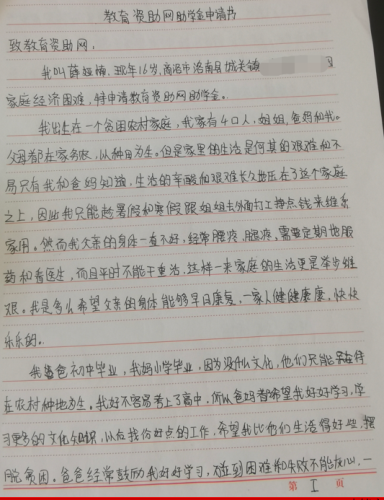 教育资助网助学金申请书
致教育资助网:
我叫薛娅楠,现年16岁,商洛市洛南县城关镇
家庭经济困难,特申请教育资助网助学金。
我出生在一个贫困农村家庭,我家有4口人,姐姐,爸妈和我。
父母都在家务农,以种田为生。但是家里的生活是何其的艰难和不
易只有我和爸妈知道,生活的辛酸和艰难长久地压在了这个家庭
之上,因此我只能趁暑假和寒假跟姐姐去外面打工挣点钱来维系
家用。然而我父亲的身体一直不好,经常腰疼,腿疼,需要定期地服
药和看医生,而且平时不能干重活,这样一来家庭的生活更是举步维
艰。我是多么希望父亲的身体能够早日康复,一家人健健康康,快快
乐乐的。
我爸爸初中毕业,我妈小学毕业,因为没什么文化,他们只能呆在
在农村种地为生。我好不容易考上了高中,所以爸妈都希望我好好学习,学
习更多的文化知识,以后找份好点的工作,希望我比他们生活得好些,摆
脱贫困。爸爸经常鼓励我好好学习,碰到困难和失败不能灰心,一
第 1 页